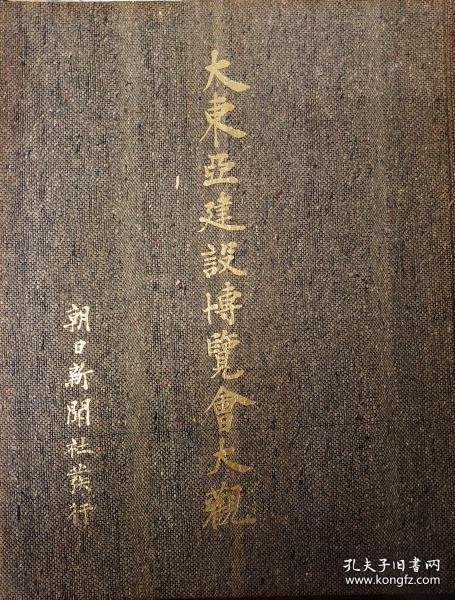 大東亞建設博覽會大觀
朝日新聞社發行
孔夫子旧书网
www.kongfz.com